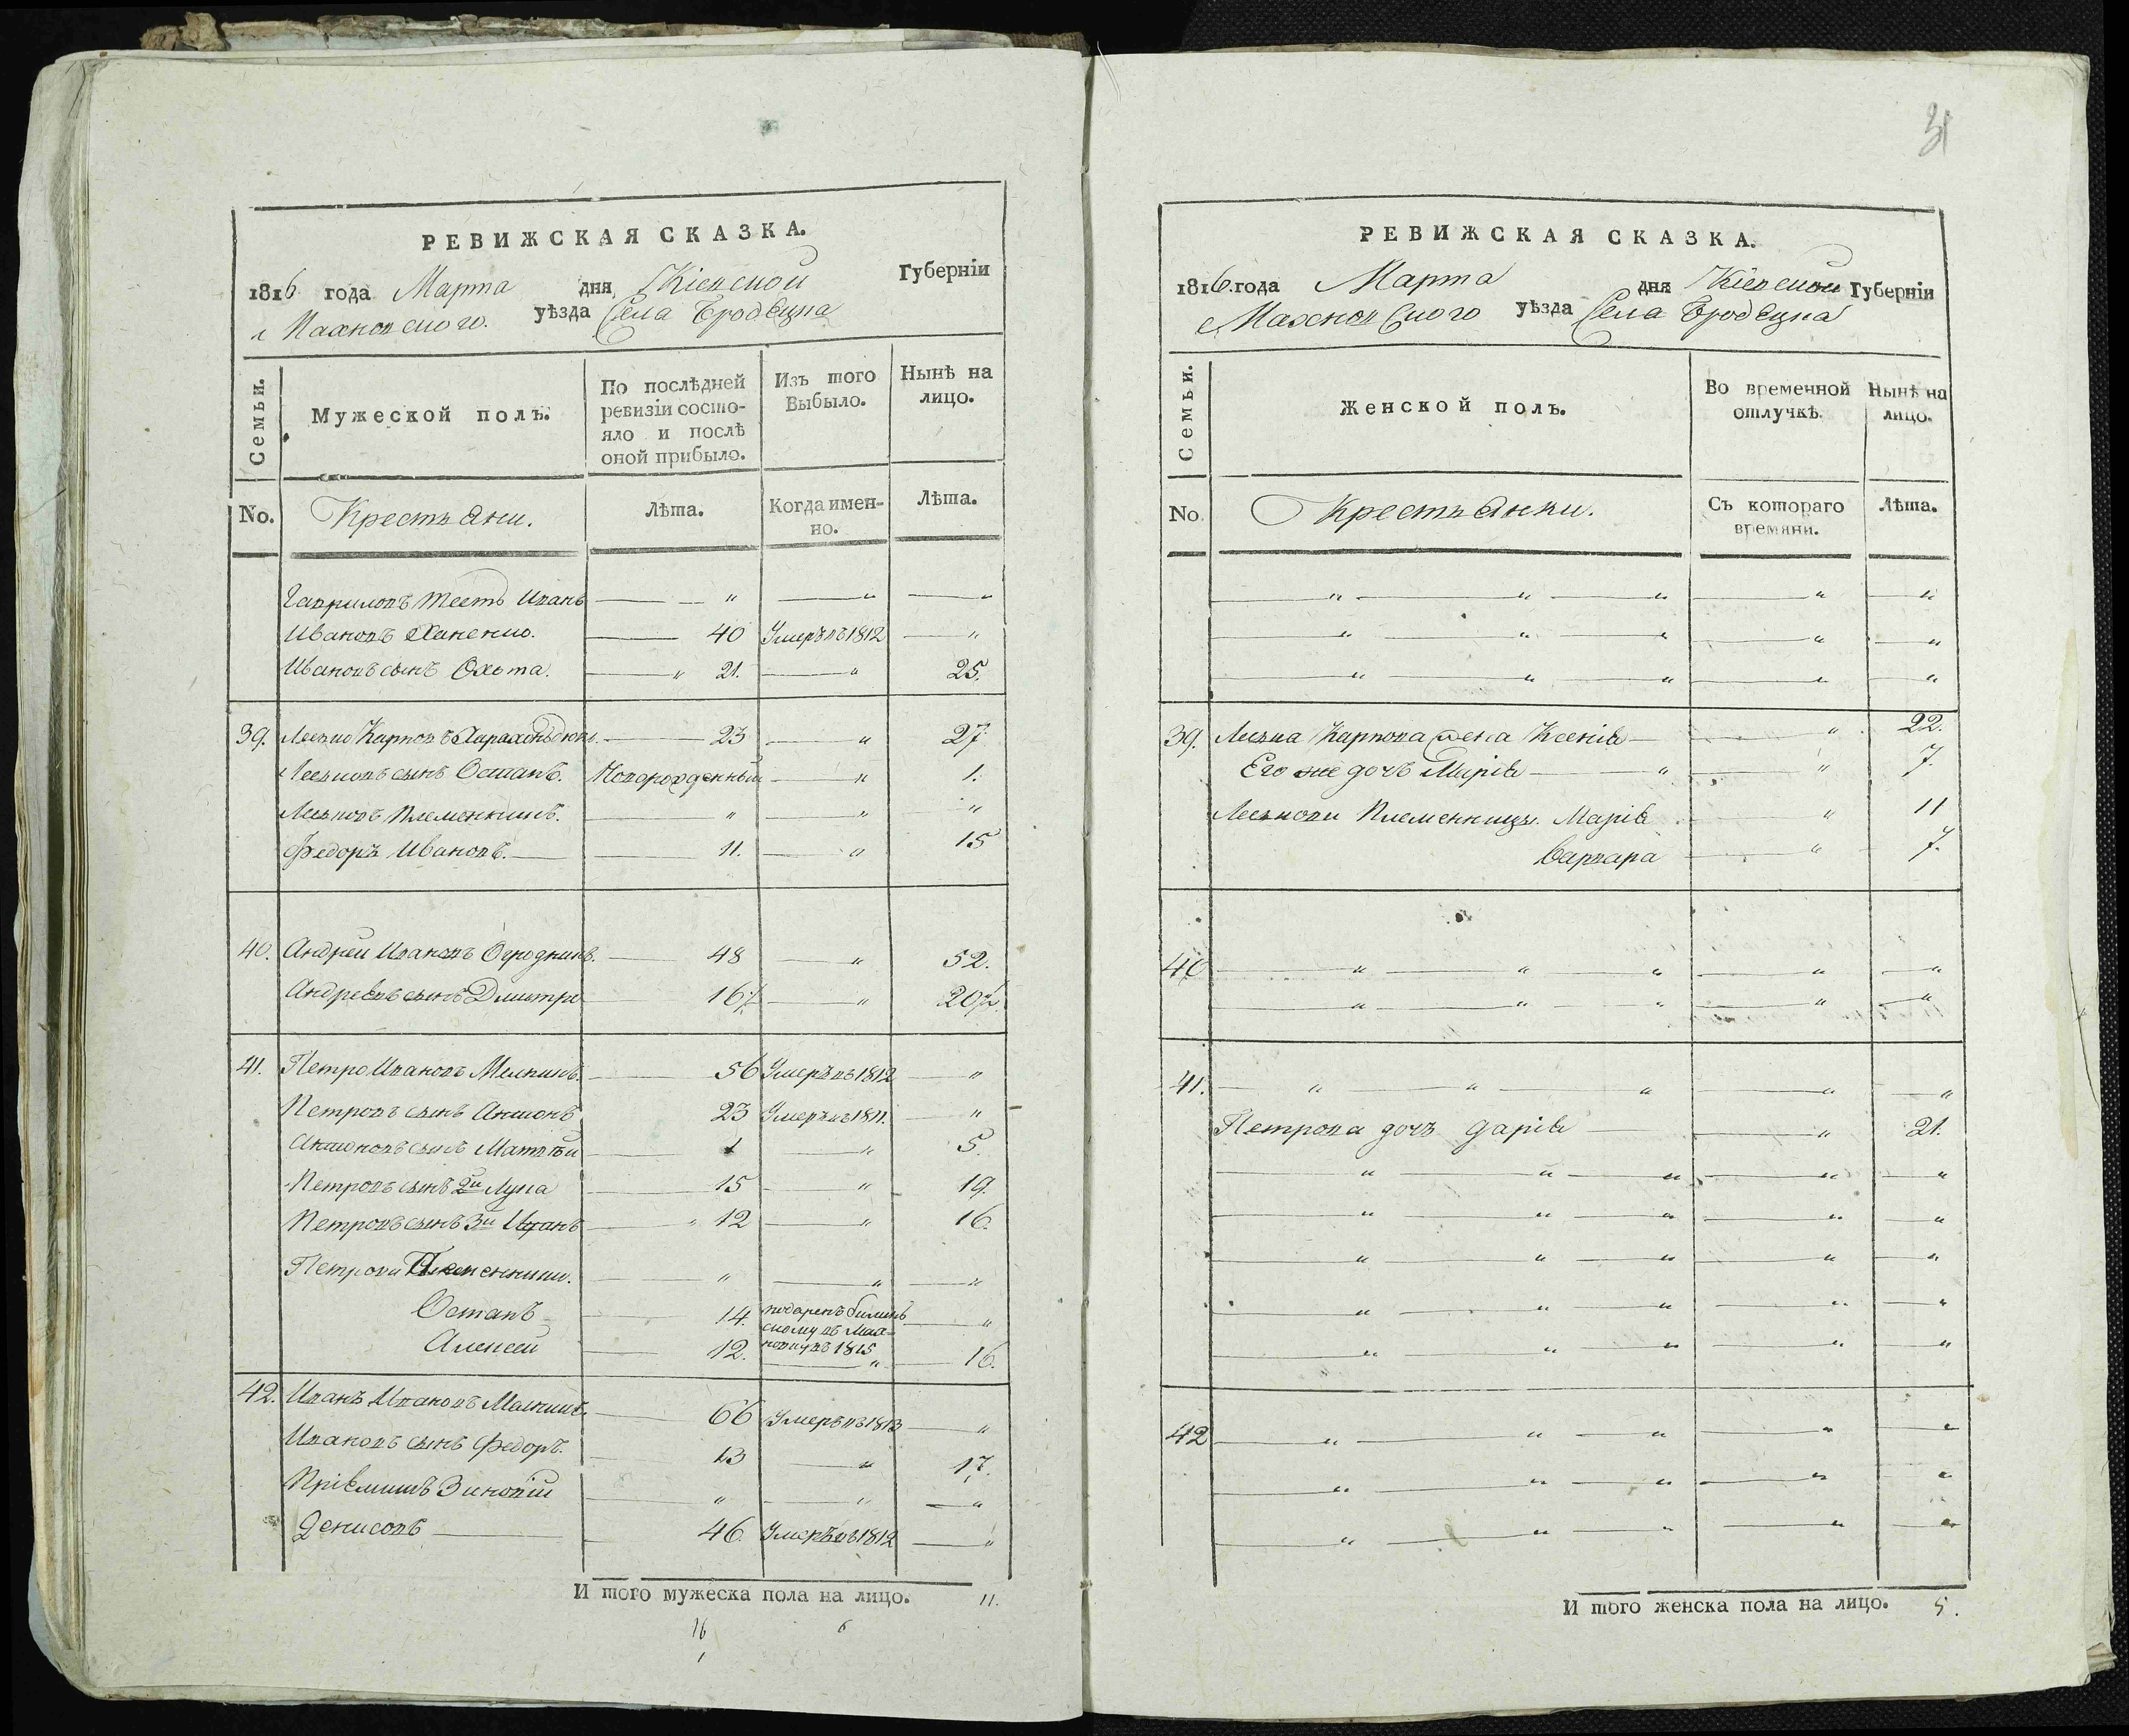 РЕВИЖСКАЯ СКАЗКА.
1816 года Марта дня Кіевской Губерніи
Махновского. уѣзда Села Бродецка
Семьи. Мужеской полъ. По послѣдней ревизіи состояло и послѣ оной прибыло. Изъ того Выбыло. Нынѣ на лицо.
No. Крестьяни. Лѣта. Когда именно. Лѣта.
Гавриловъ тесть Иванъ — " — " — "
Ивановъ 40 Умеръ въ 1812 — "
Ивановъ сынъ 21. — " 25.
39. Леско Карповъ 23 — " 27
Лесковъ сынъ Остапъ. Новорожденный — " 1.
Лесковъ племенникъ. — " — " "
Федоръ Ивановъ. — 11. — " 15
40. Андрей Ивановъ Огродникъ. 48 — " 52.
Андреевъ сынъ Дмитро 16½ — " 20½
41. Петро Ивановъ Мелникъ. 56 Умеръ въ 1812 — "
Петровъ сынъ 23 Умеръ въ 1811. — "
сынъ Матвѣй 1 — " 5.
Петровъ сынъ 2й Лука 15 — " 19.
Петровъ сынъ 3й Иванъ " 12 — " 16.
Петрови Племенники. — " — " — "
Остапъ 14. подаренъ
скому въ
1815 — "
Алексей 12. — " 16.
42. Иванъ Ивановъ 66 Умеръ въ 1813 — "
Ивановъ сынъ Федоръ. 13 — " 17.
Пріемишъ Зиновій — " — " — "
Денисовъ — 46. Умеръ въ 1812 — "
И того мужеска пола на лицо. 11.
16 6
1
31
РЕВИЖСКАЯ СКАЗКА.
1816. года Марта дня Кіевской Губерніи
Махновского уѣзда Села Бродецка
Семьи. Женской полъ. Во временной отлучкѣ. Нынѣ на лицо.
No. Крестьянки. Съ котораго времяни. Лѣта.
— " — " — " — " — "
— " — " — " — " — "
— " — " — " — " — "
39. Леска Карпова жена Ксенія — " 22.
Его же дочъ Марія — " " 7.
Лескови Племенницы. Марія " 11
Варвара — " 7.
40 — " — " — " — " — "
— " — " — " — " — "
41. — " — " — " — " — "
Петрова дочъ Дарія — " 21.
— " — " — " — " — "
— " — " — " — " — "
— " — " — " — " — "
— " — " — " — " — "
— " — " — " — " — "
42 — " — " — " — " — "
— " — " — " — " "
— " — " — " — " — "
И того женска пола на лицо. 5.